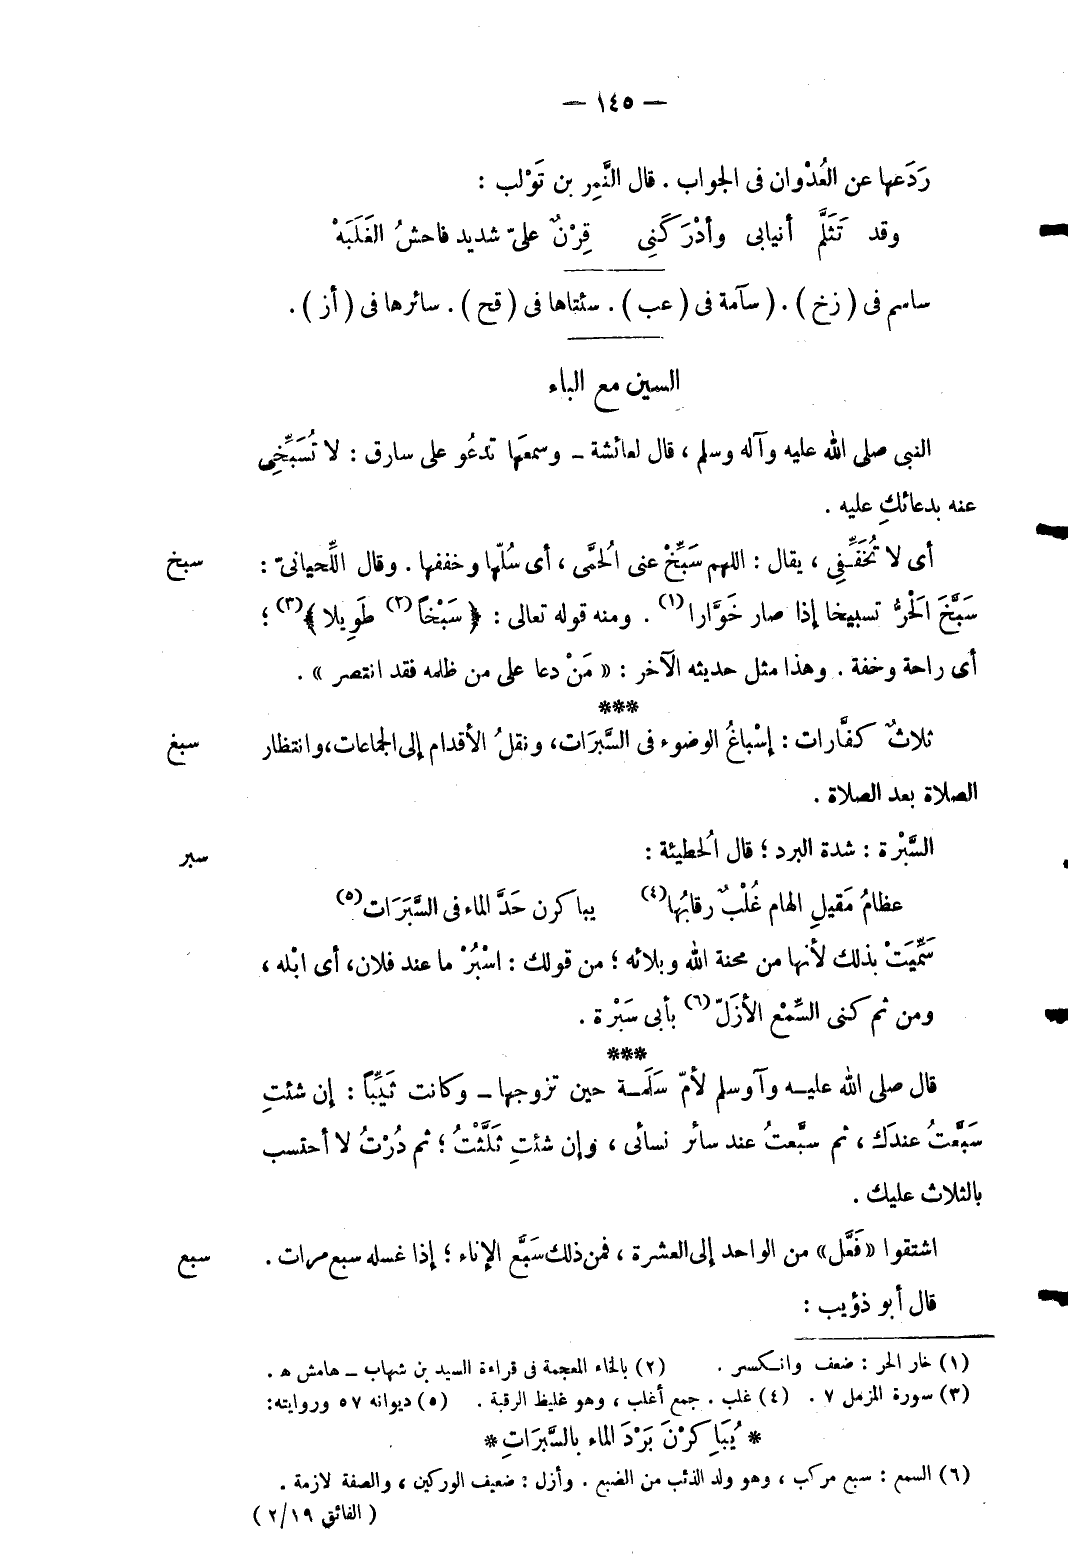 — ١٤٥ —
رَدَعها عن العُدْوان فى الجواب . قال النَّمِر بن تَوْلب :
وقد تَثَلَّم أنيابى وأدْرَكَنِى قِرْنٌ علىّ شديد فاحشُ الغَلَبَهْ
ساسم فى ( زخ ) . ( سآمة فى ( عب ) . سئتاها فى ( قح ) . سائرها فى ( أز ) .
السين مع الباء
النبى صلى الله عليه وآله وسلم ، قال لعائشة – وسمعَها تدعُو على سارق : لا تُسَبِّخِى
عنه بدعائكِ عليه .
أى لا تُخَفِّفِى ، يقال : اللهم سَبِّخْ عنى الْحمَّى ، أى سُلّها وخففها . وقال اللِّحيانىّ : سبخ
سَبَّخَ الْحَرُّ تسبيخا إذا صار خَوَّارا(١) . ومنه قوله تعالى : ﴿ سَبْخاً(٢) طَوِيلا ﴾(٣) ؛
أى راحة وخفة . وهذا مثل حديثه الآخر : « مَنْ دعا على من ظلمه فقد انتصر » .
***
ثلاثٌ كفَّارات : إسْباغُ الوضوء فى السَّبرَات، ونقلُ الأقدام إلى الجماعات، وانتظار سبغ
الصلاة بعد الصلاة .
السَّبْرة : شدة البرد ؛ قال الْحطيئة : سبر
عظامُ مَقيلِ الهام غُلْبٌ رقابُها(٤) يباكرن حَدَّ الماء فى السَّبَرَات(٥)
سَمِّيَتْ بذلك لأنها من محنة الله وبلائه ؛ من قولك : اسْبُرْ ما عند فلان، أى ابْله ،
ومن ثم كنى السِّمْع الأزَلّ(٦) بأبى سَبْرة .
***
قال صلى الله عليه وآ وسلم لأمّ سَلَمة حين تزوجها – وكانت ثَيِّباً : إن شئتِ
سَبَّعتُ عندَك ، ثم سبَّعتُ عند سائر نسائى ، وإن شئتِ ثَلَّثْتُ ؛ ثم دُرْتُ لا أحتسب
بالثلاث عليك .
اشتقوا « فَعَّل » من الواحد إلى العشرة ، فمن ذلك سَبَّع الإناء ؛ إذا غسله سبع مرات . سبع
قال أبو ذؤيب :
(١) خار الحر : ضعف وانكسر . (٢) بالخاء المعجمة فى قراءة السيد بن شهاب – هامش ه .
(٣) سورة المزمل ٧ . (٤) غلب . جمع أغلب ، وهو غليظ الرقبة . (٥) ديوانه ٥٧ وروايته:
* يُبَاكِرْنَ بَرْدَ الماء بالسَّبَرَاتِ *
(٦) السمع : سبع مركب ، وهو ولد الذئب من الضبع . وأزل : ضعيف الوركين ، والصفة لازمة .
( الفائق ٢/١٩ )